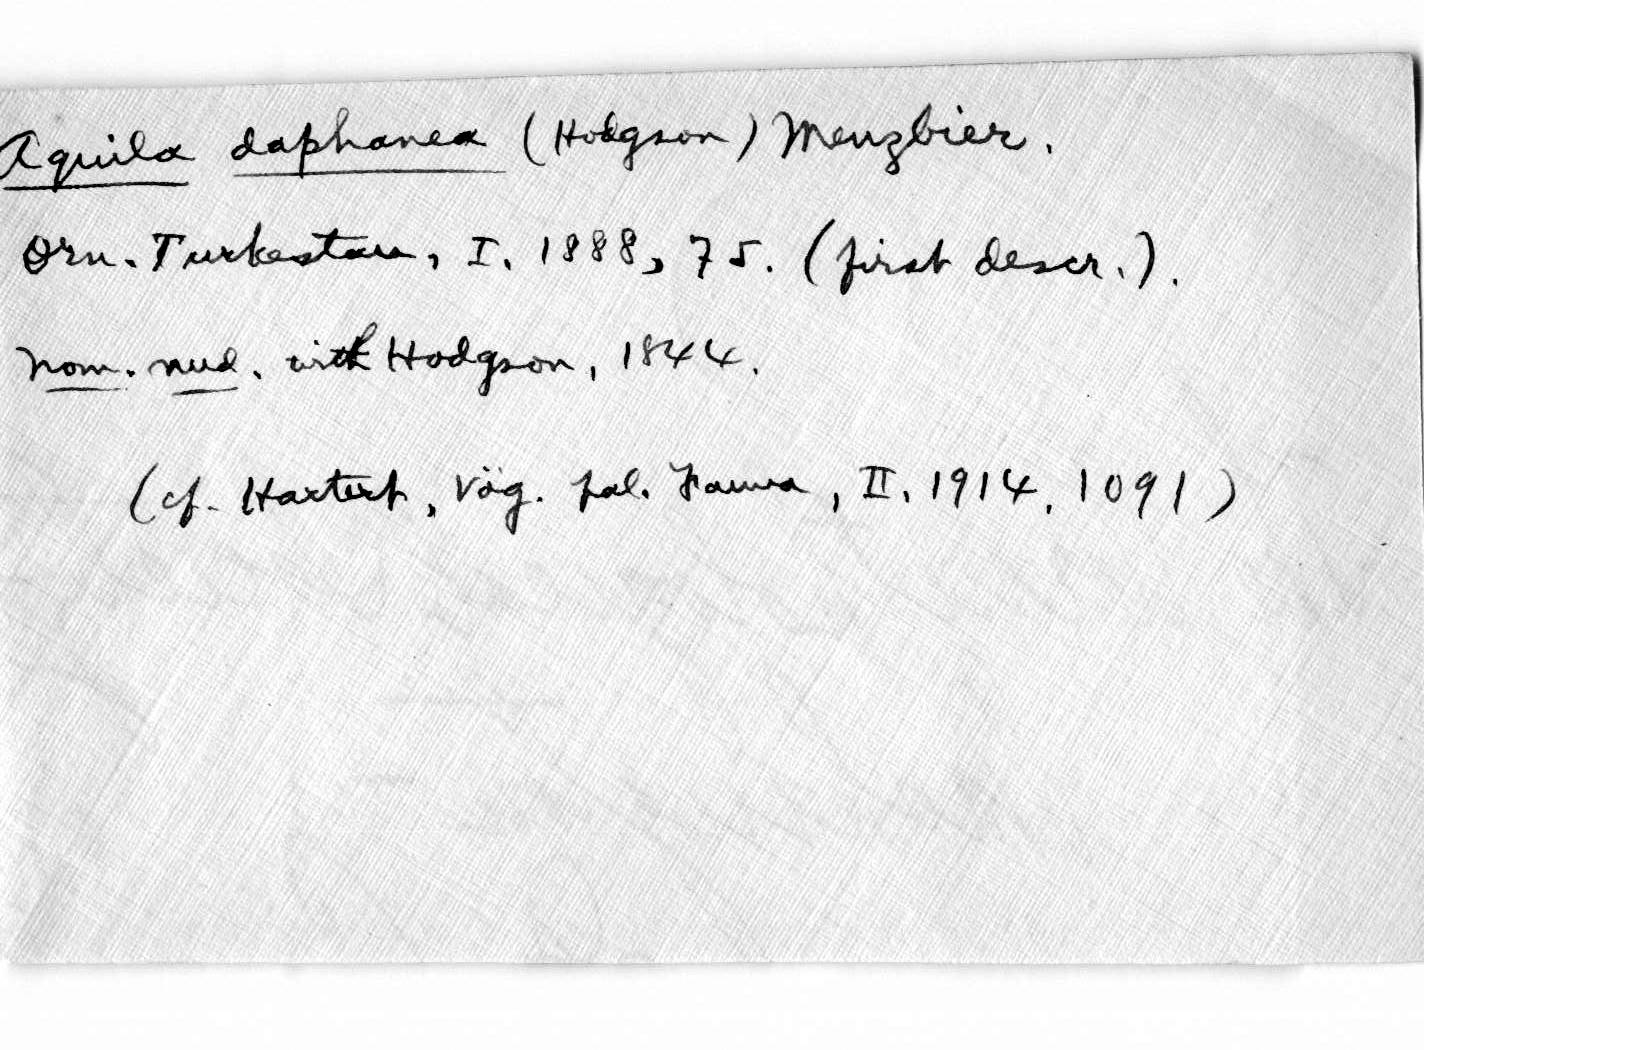 Aquila daphanea (Hodgson) Menzbier.
Orn. Turkestan, I. 1888, 75. (first descr.).
nom. nud. with Hodgson, 1844.
(cf. Hartert, Vög. pal. Fauna, II, 1914, 1091)